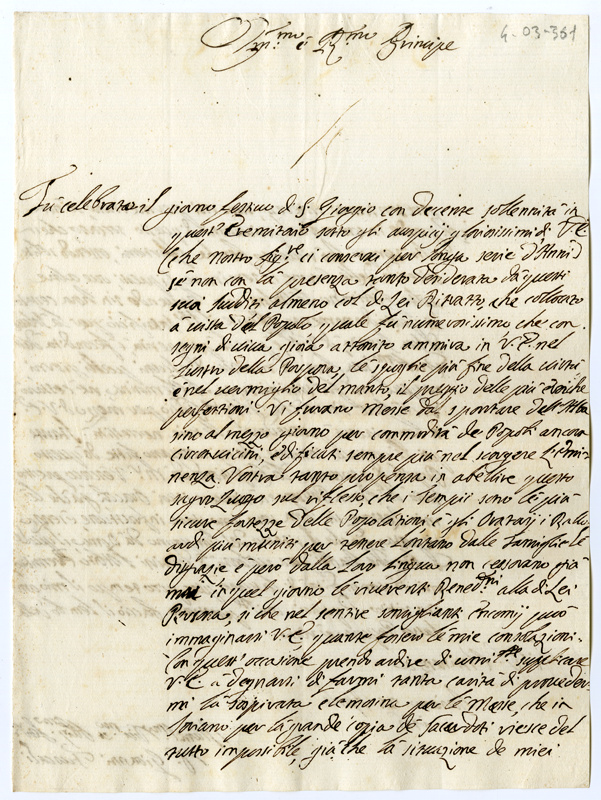 4-03-361
Em.mo e R.mo Principe
Fù celebrato il giorno festivo di S. Giorgio con decente sollennità in
quest' Eremitorio sotto gli auspicij gloriosissimi di V. E.
(che nostro Sig.re ci conservi per longa serie d'Anni)
se non con la presenza tanto desiderata da questi
suoi sudditi almeno col di Lei Ritratto, che collocato
à vista del Popolo quale fù numerosissimo che con
segni di viva gioia attonito ammirava in V. E. nel
lustro della Porpora, le spoglie più fine della carità
e nel vermiglio del manto, il pregio delle più eroiche
perfettioni. Vi furano Messe dal spontare dell' Alba
sino al mezzo giorno per commodità de Popoli ancora
circonvicini, edificati sempre più nel scorgere l'Emi-
nenza Vostra tanto propensa in abellire questo
sagro luogo sul riflesso, che i Tempij sono le più
sicure fortezze delle Popolationi e gli Oratorij i Balu-
ardi più muniti per tenere lontano dalle famiglie le
disgrazie e però dalla loro lingua non cessorano già
mai in quel giorno le riverenti Bened.ni alla di Lei
Persona, si che nel sentire somiglianti Encomij può
immaginarsi V. E. quante fossero le mie consolazioni.
Con quest' occasione prendo ardire di umil.te supplicare
V. E. a degnarsi di farmi tanta carità di proveder-
mi la sospirata elemosina per le Messe, che in
Soriano per la grande copia de sacerdoti riesce del
tutto impossibile già che la situazione de miei